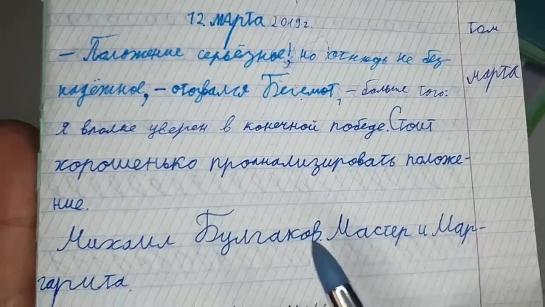 12 марта 2019 г.
том
– Положение серьёзное!, но отнюдь не без-
надёжное, – отозвался Бегемот, – больше того:
марта
я вполне уверен в конечной победе. Стоит
хорошенько проанализировать положе-
ние.
Михаил Булгаков. Мастер и Мар-
гарита.